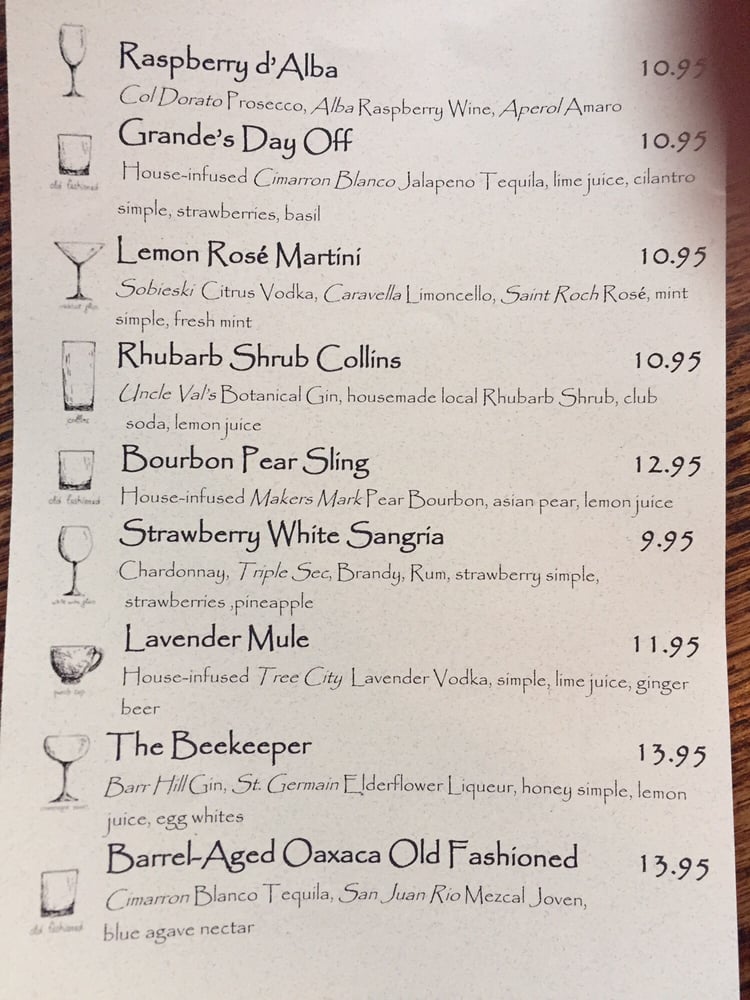 Raspberry d'Alba 10.95
Col Dorato Prosecco, Alba Raspberry Wine, Aperol Amaro
Grande's Day Off 10.95
old fashioned
House-infused Cimarron Blanco Jalapeno Tequila, lime juice, cilantro
simple, strawberries, basil
Lemon Rosé Martini 10.95
Sobieski Citrus Vodka, Caravella Limoncello, Saint Roch Rosé, mint
simple, fresh mint
Rhubarb Shrub Collins 10.95
Uncle Val's Botanical Gin, housemade local Rhubarb Shrub, club
collins
soda, lemon juice
Bourbon Pear Sling 12.95
old fashioned
House-infused Makers Mark Pear Bourbon, asian pear, lemon juice
Strawberry White Sangría 9.95
Chardonnay, Triple Sec, Brandy, Rum, strawberry simple,
white wine glass
strawberries ,pineapple
Lavender Mule 11.95
House-infused Tree City Lavender Vodka, simple, lime juice, ginger
punch cup
beer
The Beekeeper 13.95
Barr Hill Gin, St. Germain Elderflower Liqueur, honey simple, lemon
juice, egg whites
Barrel-Aged Oaxaca Old Fashioned 13.95
Cimarron Blanco Tequila, San Juan Rio Mezcal Joven,
old fashioned
blue agave nectar